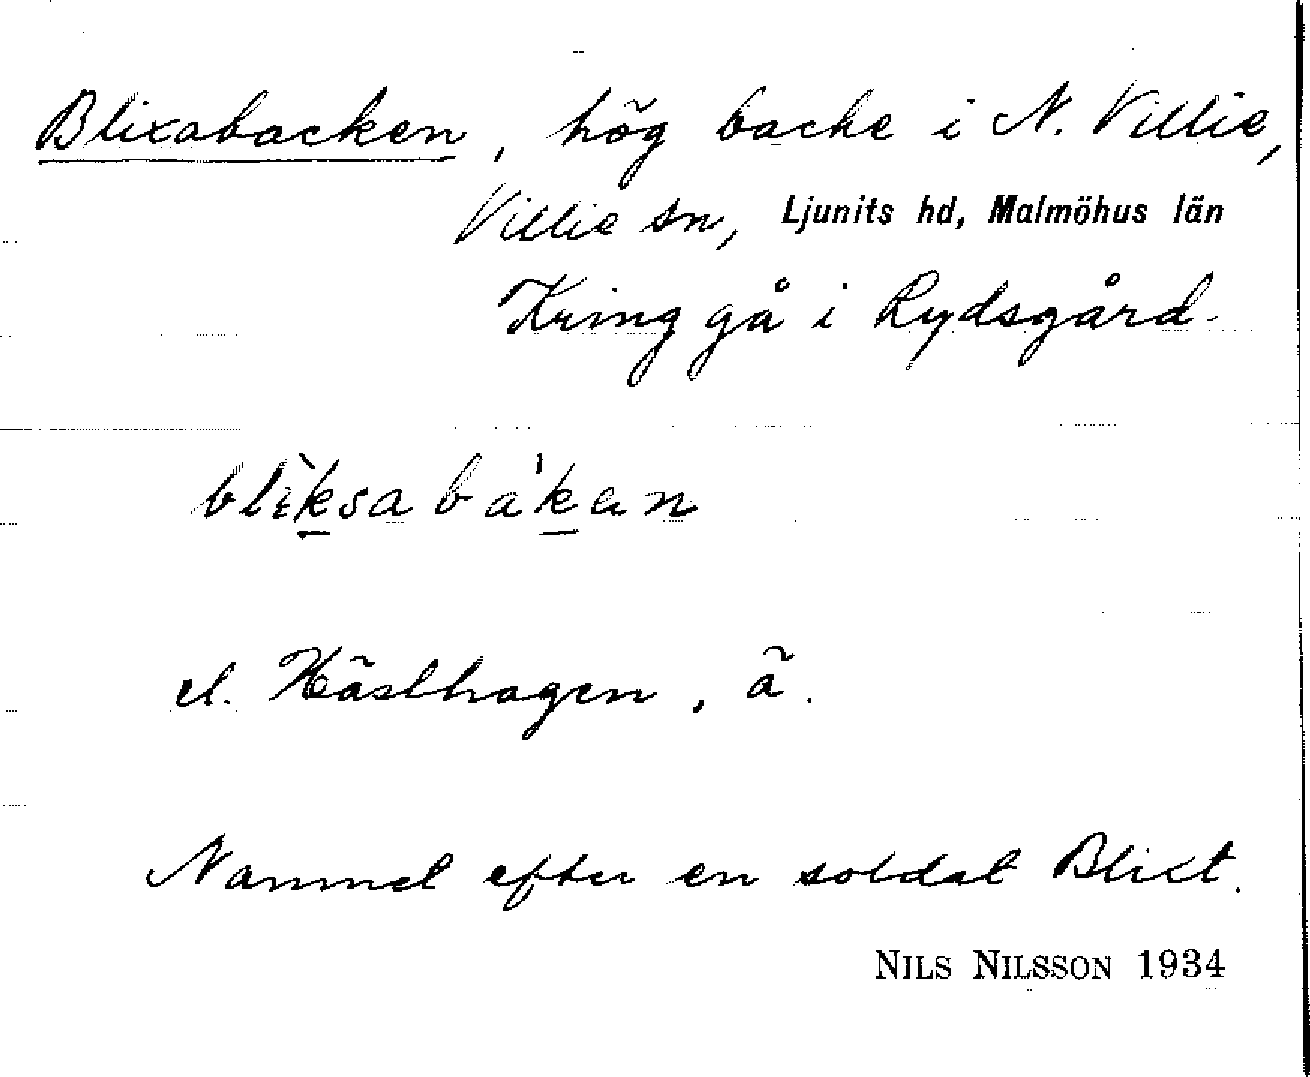 Blixabacken, hög backe i N. Villie,
Villie sn, Ljunits hd, Malmöhus län
Kring gå i Rydsgård
blìksabáken
el. Hästhagen, ä.
Namnet efter en soldat Blixt.
NILS NILSSON 1934